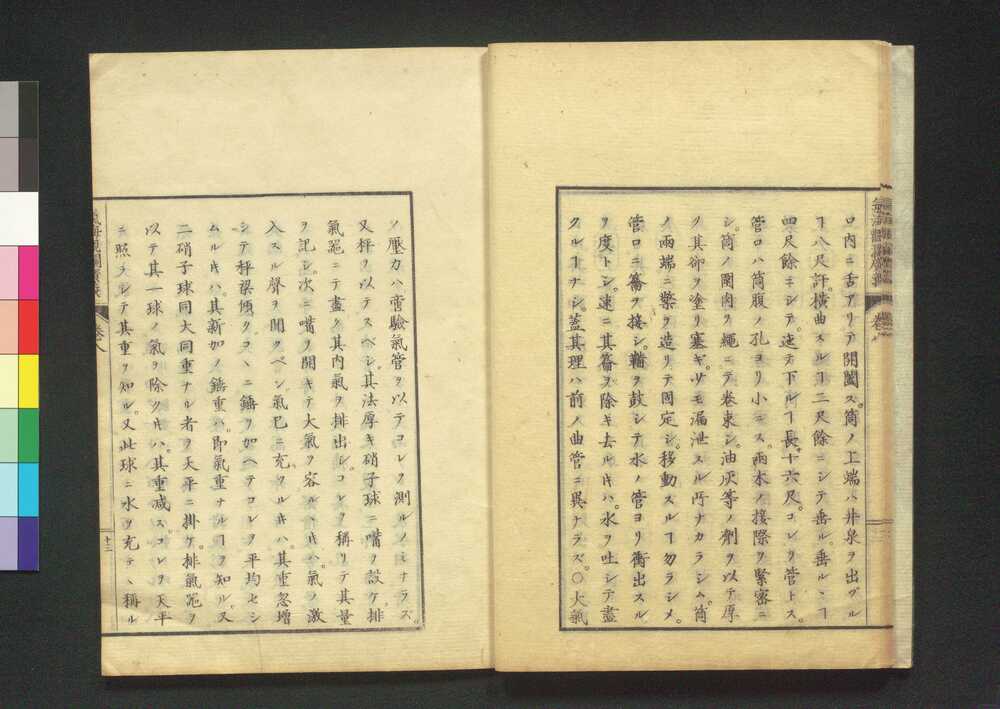 ロ内ニ舌アリテ開闔ス。筒ノ上端ハ井泉ヲ出ヅル
ヿ八尺許。橫曲スルヿ二尺餘ニシテ垂ル。垂ルヽヿ
四尺餘ニシテ。迄テ下ルヿ長サ十六尺。コレヲ管トス。
管口ハ筒腹ノ孔ヨリ小ニス。兩木ノ接際ヲ緊密ニ
シ。筒ノ圍肉ヲ繩ニテ卷束シ。油灰等ノ劑ヲ以テ厚
ク其卻ヲ塗リ塞ギ。少モ漏泄スル所ナカラシム。筒
ノ兩端ニ架ヲ造リテ固定シ。移動スルヿ勿ラシメ。
管口ニ籥ヲ接シ。鞴ヲ鼓シテ水ノ管ヨリ衝出スル
ヲ度トシ。速ニ其籥ヲ除キ去ル片ハ。水ヲ吐シテ盡
クルヿナシ。蓋其理ハ前ノ曲管ニ異ナラズ。〇大氣
ノ壓力ハ啻驗氣管ヲ以テコレヲ測ルノミナラズ。
又秤ヲ以テスベシ。其法厚キ硝子球ニ嘴ヲ設ケ。排
氣鐘ニテ盡ク其内氣ヲ排出シ。コレヲ稱リテ其量
ヲ記シ。次ニ嘴ヲ開キテ大氣ヲ容ルヽ片ハ。氣ノ激
入スル聲ヲ聞クベシ。氣已ニ充ツル片ハ。其重忽增
シテ秤梁傾ク。コヽニ鍾ヲ加ヘテコレヲ平均セシ
ムル片ハ。其新加ノ鍾重ハ。即氣重ナルヿヲ知ル。又
二硝子球同大同重ナル者ヲ天平ニ掛ケ。排氣鐘ヲ
以テ其一球ノ氣ヲ除ク片ハ。其重減ス。コレヲ天平
ニ照ラシテ其重ヲ知ル。又此球ニ水ヲ充テヽ稱ル
卷八
十三